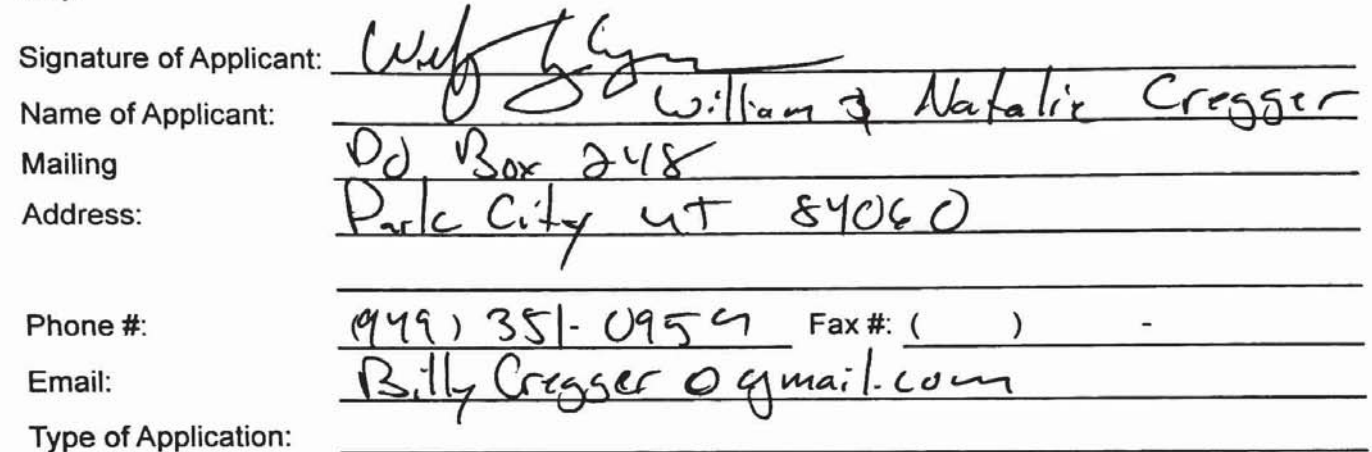 Signature of Applicant:
Name of Applicant: William & Natalie Cregger
Mailing PO Box 248
Address: Park City UT 84060
Phone #: (949) 351-0959 Fax #: ( ) -
Email: BillyCregger@gmail.com
Type of Application: